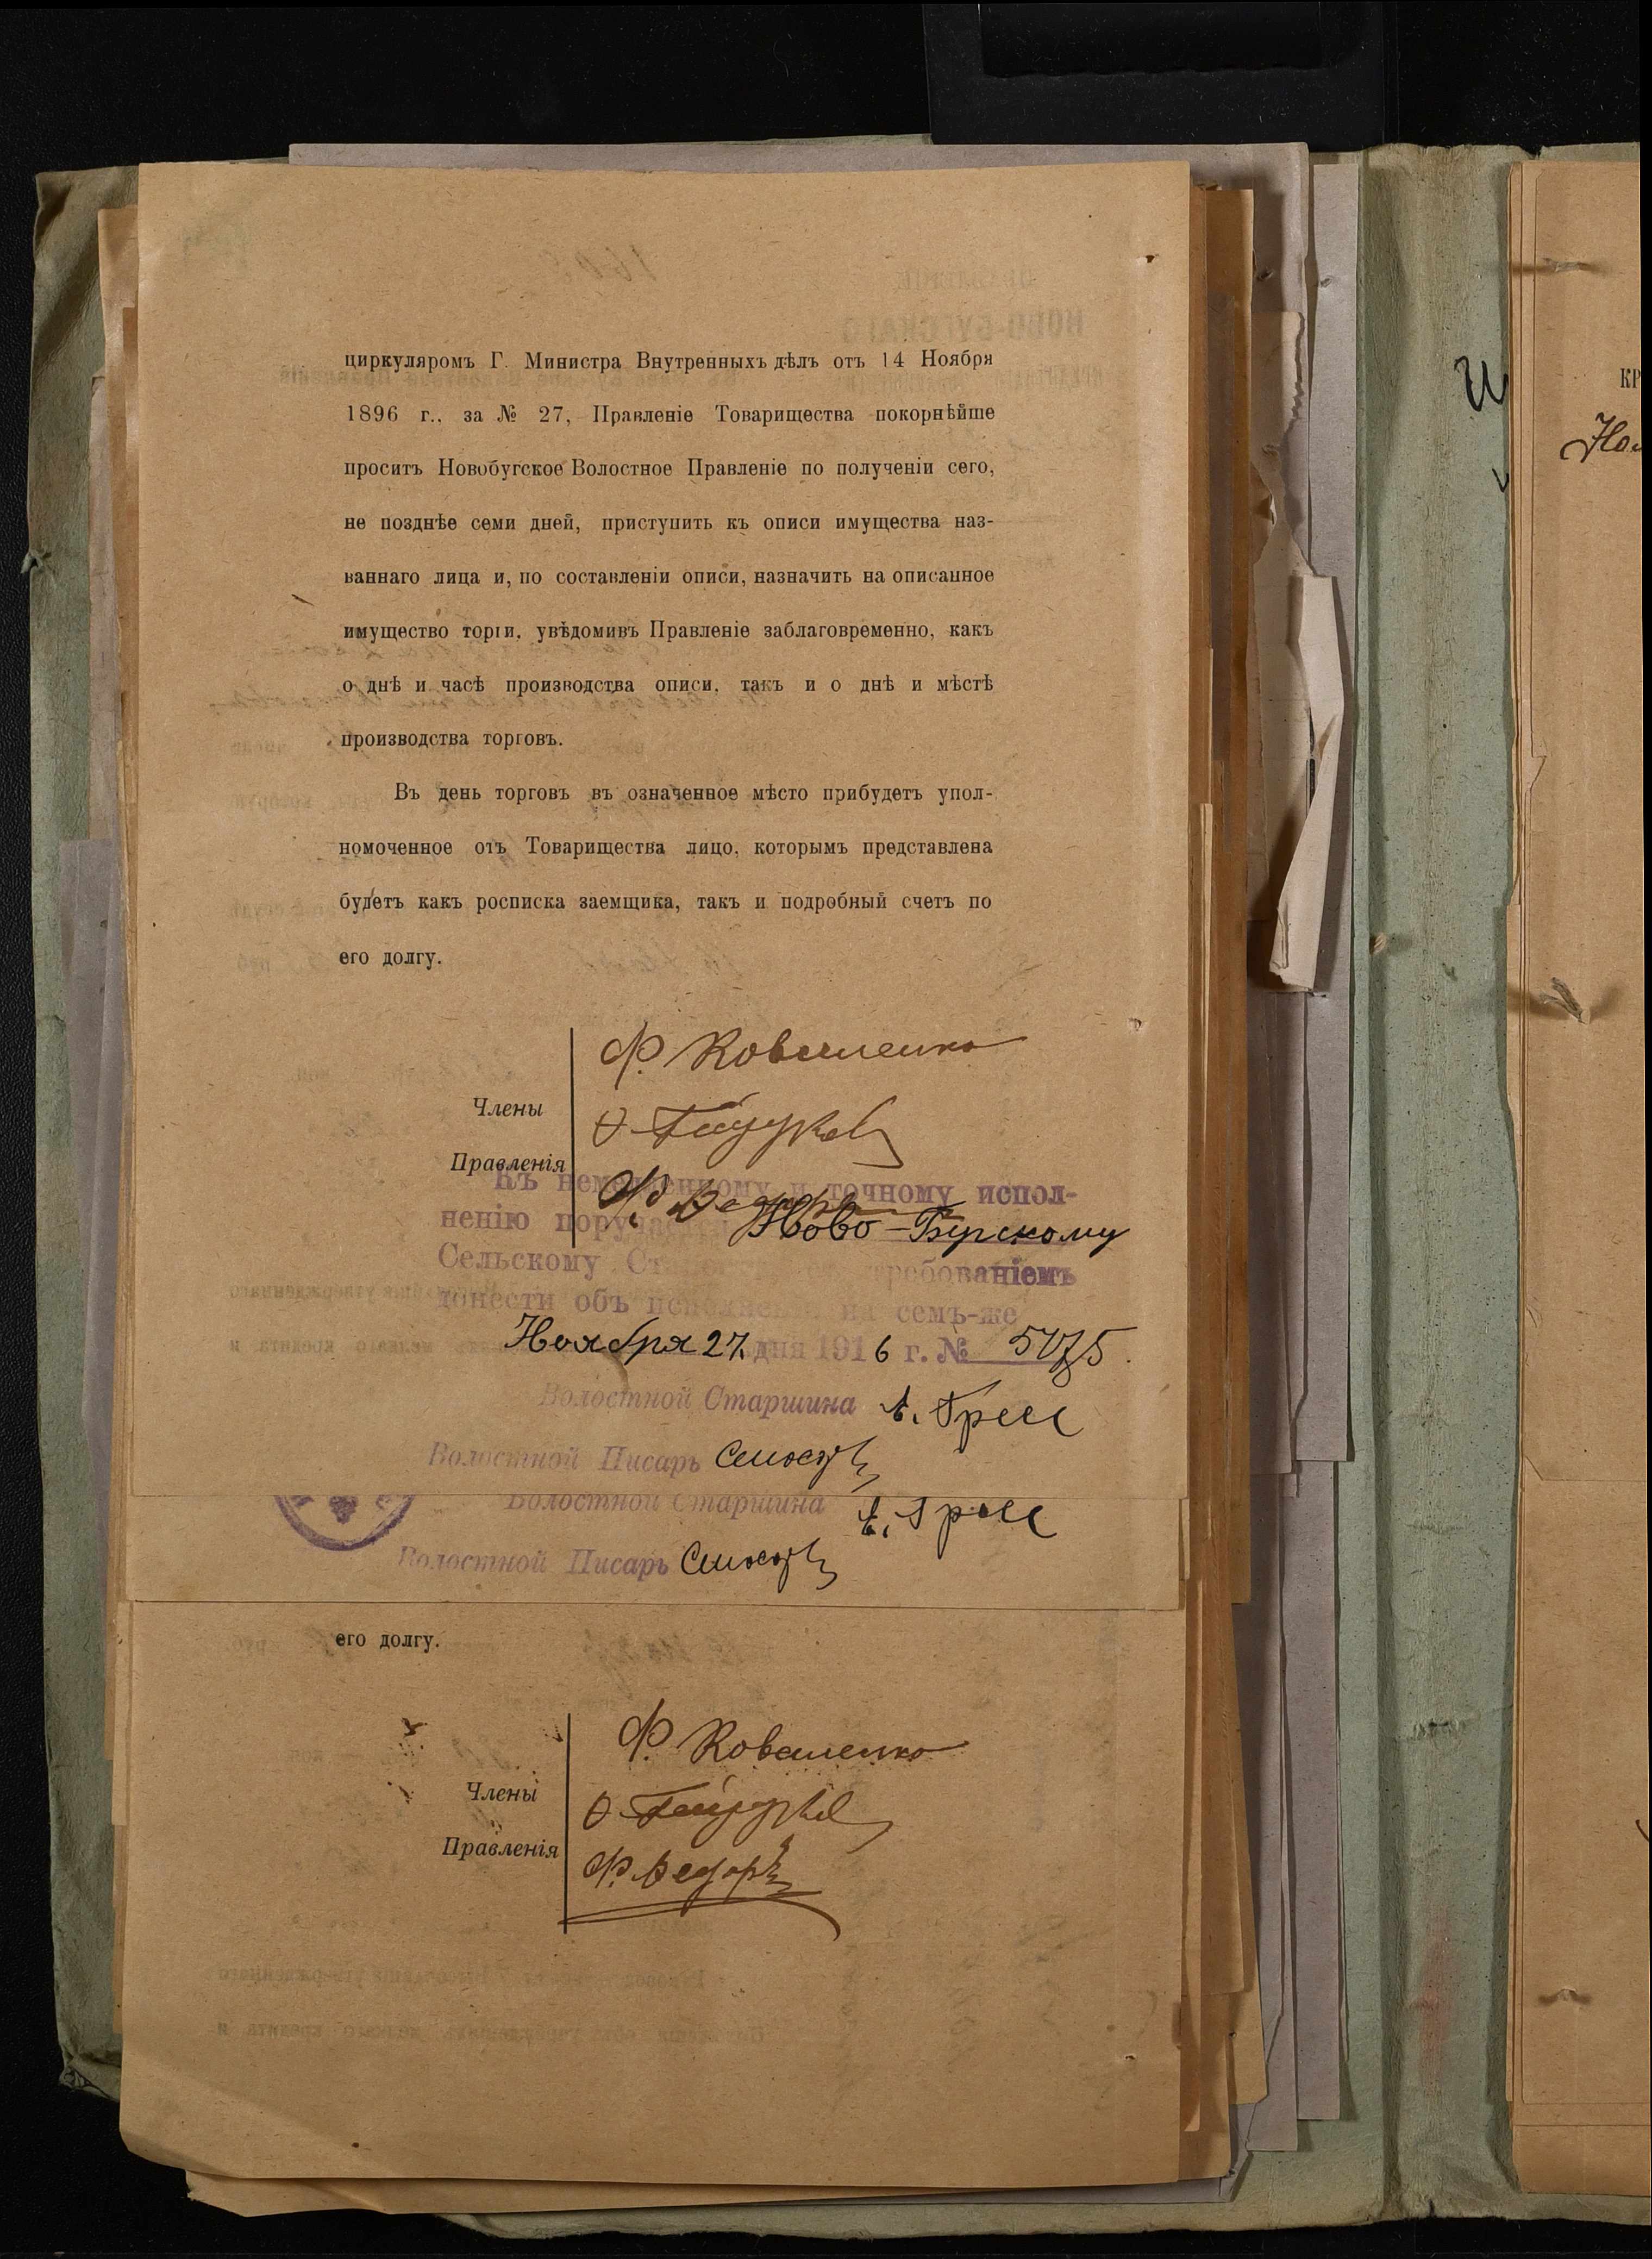 циркуляромъ Г. Министра Внутренныхъ дѣлъ отъ 14 Ноября
1896 г., за № 27, Правленіе Товарищества покорнѣйше
проситъ Новобугское Волостное Правленіе по полученіи сего,
не позднѣе семи дней, приступить къ описи имущества наз-
ваннаго лица и, по составленіи описи, назначить на описанное
имущество торги, увѣдомивъ Правленіе заблаговременно, какъ
о днѣ и часѣ производства описи, такъ и о днѣ и мѣстѣ
производства торговъ.
Въ день торговъ въ означенное мѣсто прибудетъ упол-
номоченное отъ Товарищества лицо, которымъ представлена
будетъ какъ росписка заемщика, такъ и подробный счетъ по
его долгу.
Ф. Коваленко
Члены
Правленія
Къ немедленному и точному испол-
ненію поручается Ново-Бугскому
Сельскому требованіемъ
донести объ исполненіи на семъ-же
Ноября 27 дня 1916 г. № 5075
Волостной Старшина
Волостной Писарь
Волостной Старшина
Волостной Писарь
его долгу.
Ф. Коваленко
Члены
Правленія
КР